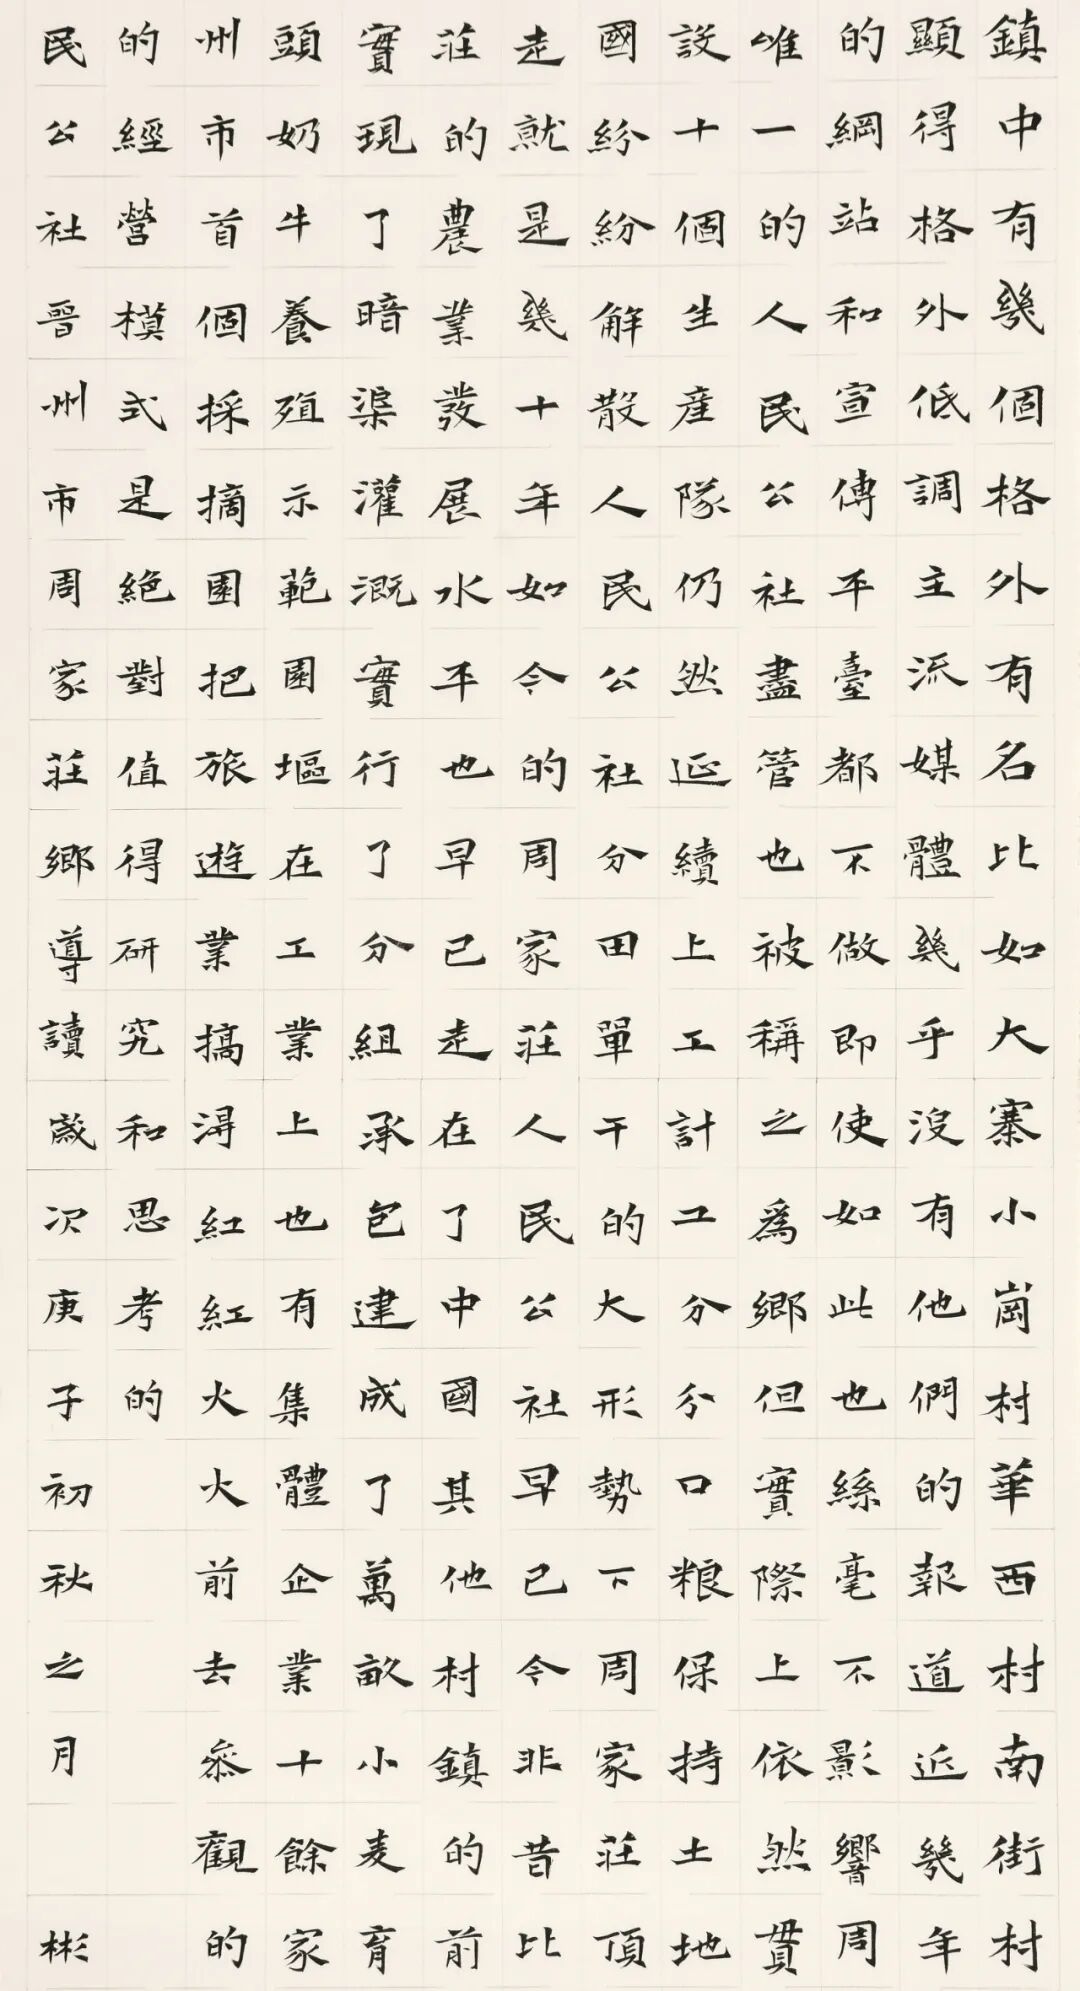 鎮中有幾個格外有名比如大寨小崗村華西村南街村
顯得格外低調主流媒體幾乎沒有他們的報道近幾年
的綱站和宣傳平臺都不做即使如此也絲毫不影響周
唯一的人民公社盡管也被稱之爲鄉但實際上依然貫
設十個生産隊仍然延續上工計工分分口粮保持土地
國紛紛解散人民公社分田單干的大形勢下周家莊頂
走就是幾十年如今的周家莊人民公社早已今非昔比
莊的農業發展水平也早已走在了中國其他村鎮的前
實現了暗渠灌溉實行了分組承包建成了萬畝小麦育
頭奶牛養殖示範園塸在工業上也有集體企業十餘家
州市首個採摘園把旅遊業搞淂紅紅火火前去叅觀的
的經營模式是絕對值得研究和思考的
民公社晉州市周家莊鄉導讀歲次庚子初秋之月 彬